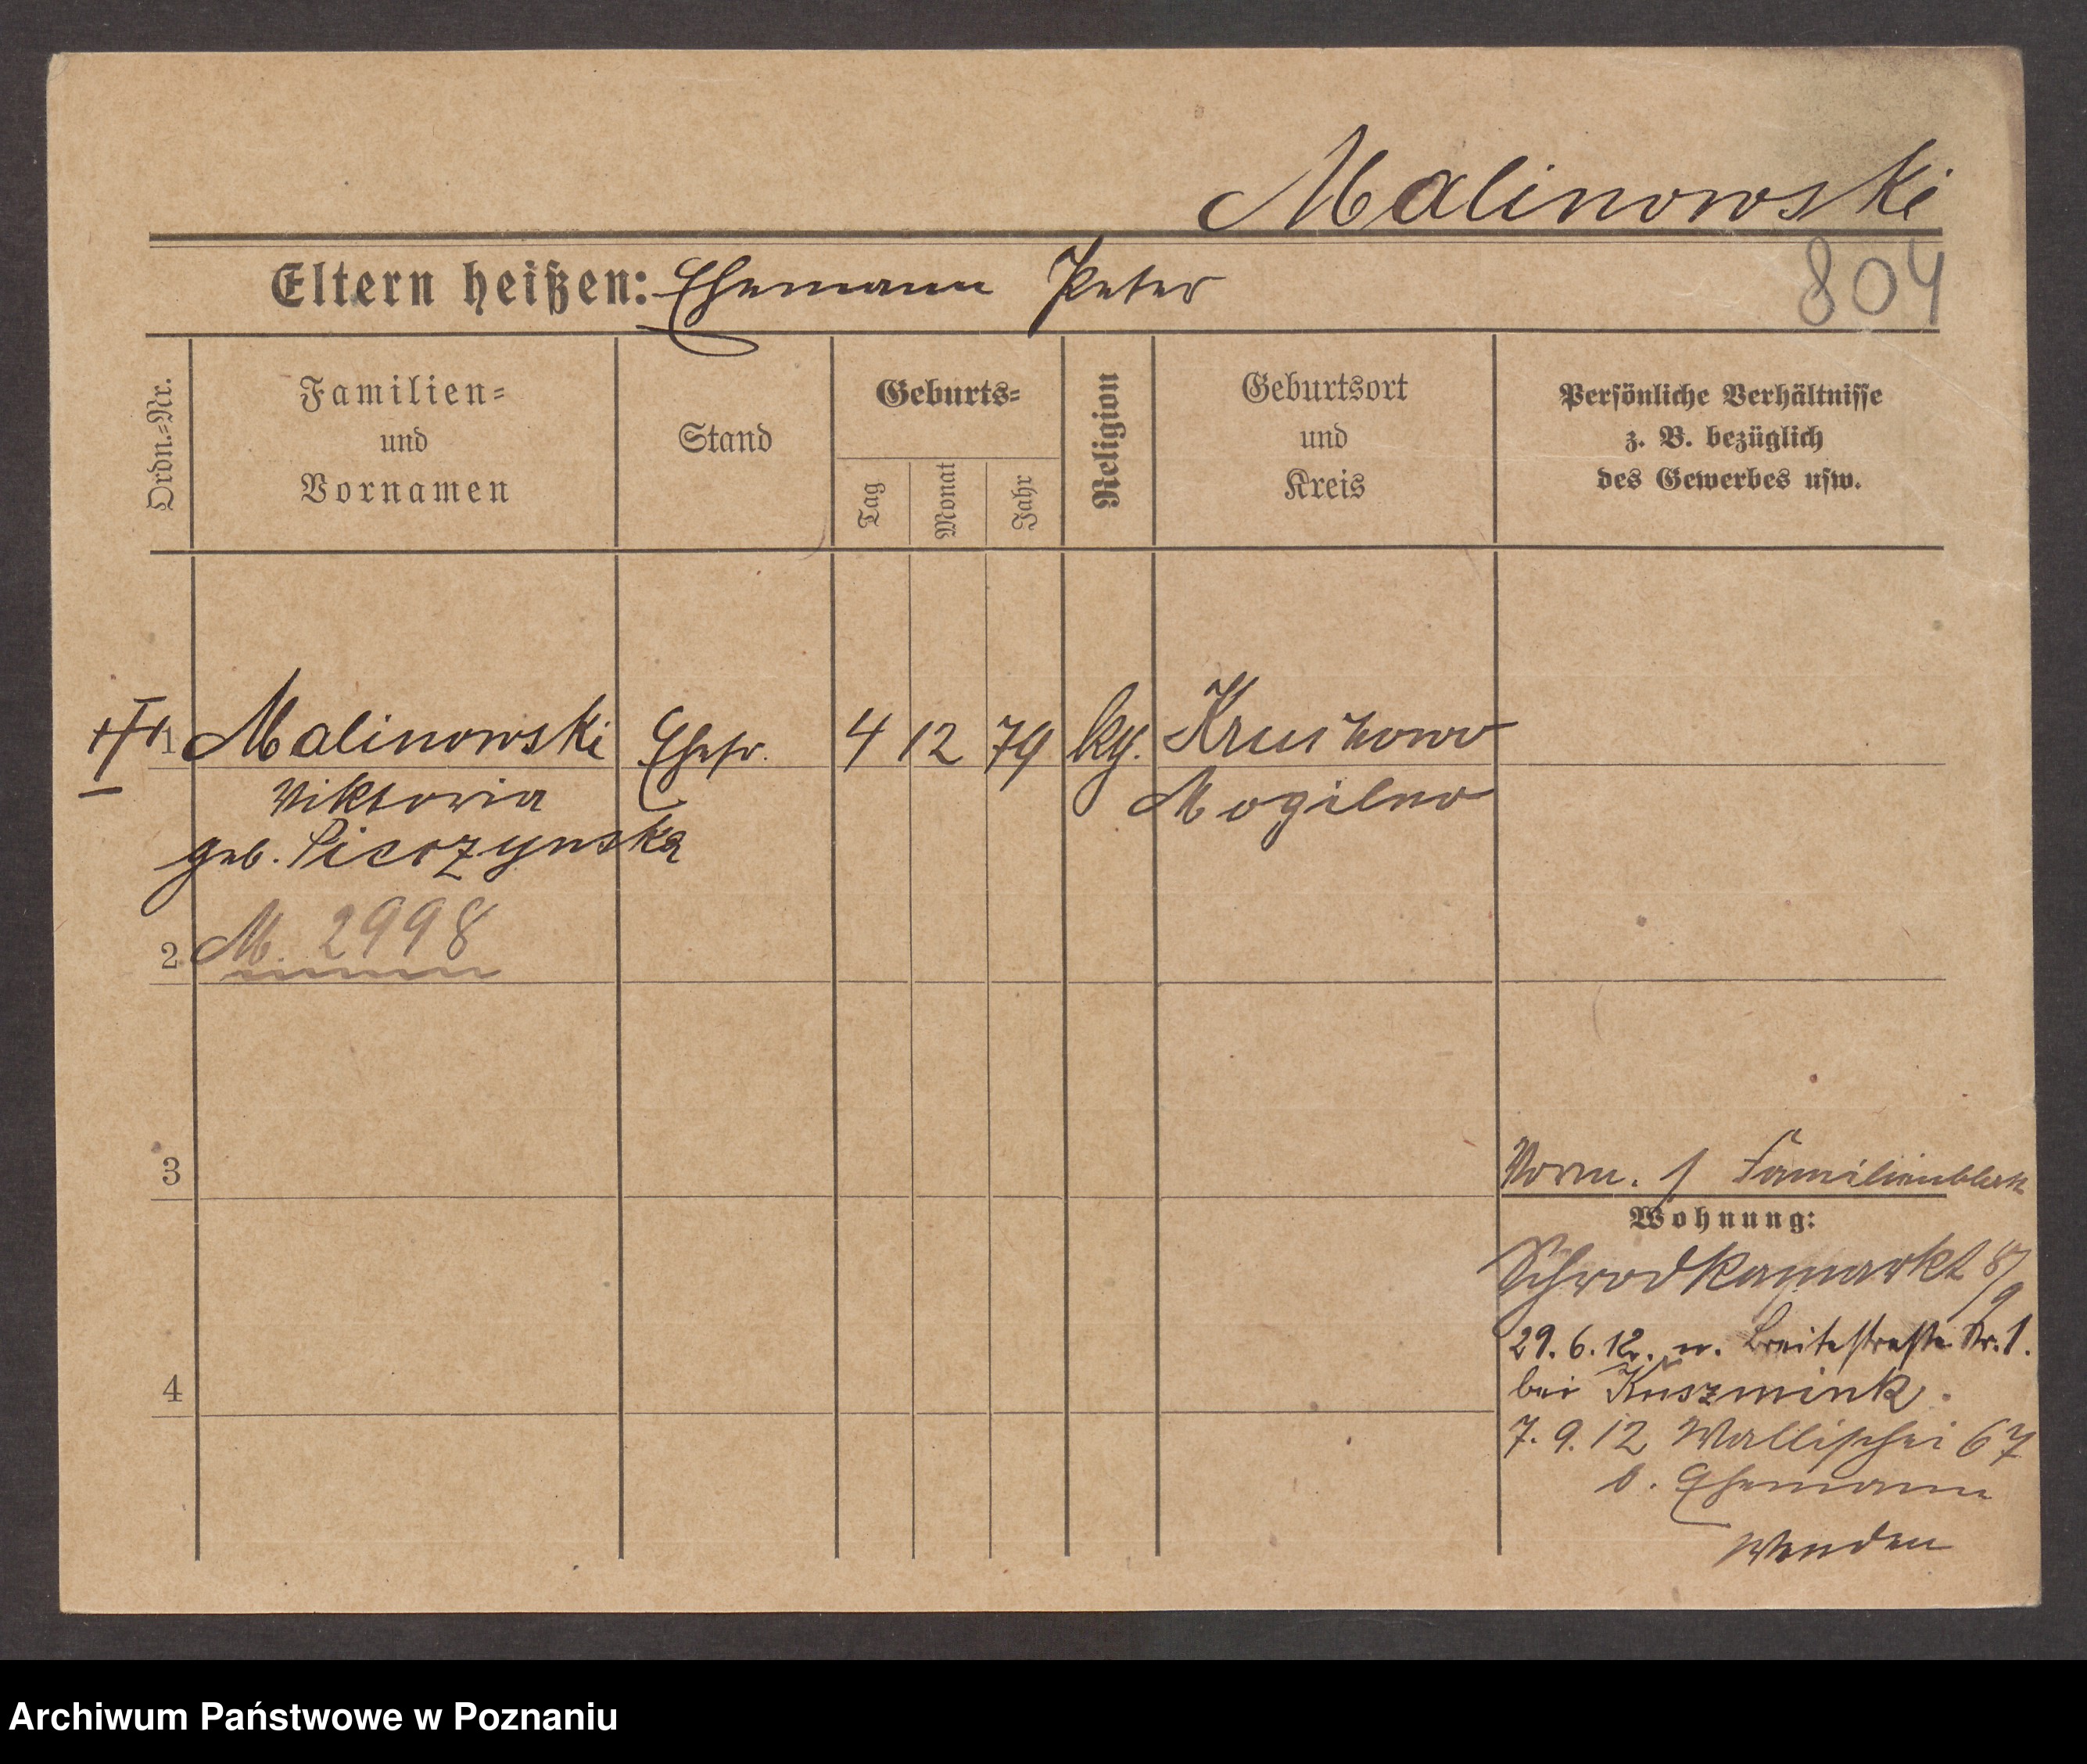 Malinowski
804
Eltern heißen: Ehemann Peter
Ordn.=Nr.
Familien=
und
Vornamen
Stand
Geburts=
Tag
Monat
Jahr
Religion
Geburtsort
und
Kreis
Persönliche Verhältnisse
z. B. bezüglich
des Gewerbes usw.
1 Malinowski Ehefr. 4 12 79 Kruchowo
Viktoria Mogilno
geb.
2 M. 2998
3
Vorm. s Familienblatt
Wohnung:
Schrodkamarkt 8/9
29.6.12. n. Breitestraße Nr. 1.
bei Kuszmink.
4
7.9.12 Wallischei 67
b. Ehemann
Wenden
Archiwum Państwowe w Poznaniu